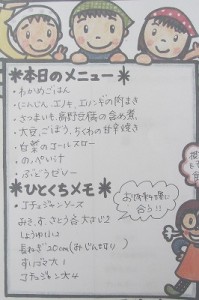 *本日のメニュー*
・わかめごはん
・にんじん、エノキ、エリンギの肉まき
・さつまいも、高野豆腐の含め煮
・大豆、ごぼう、ちくわの甘辛焼き
・白菜のコールスロー
・のっぺい汁
・ぶどうゼリー
*ひとくちメモ*
・Jチェジャンソース
お肉料理に合う!!
みそ、す、さとう 各大さじ2
しょうゆ
長ねぎ20cm(みじん切り)
すりゴマ 大1
大4